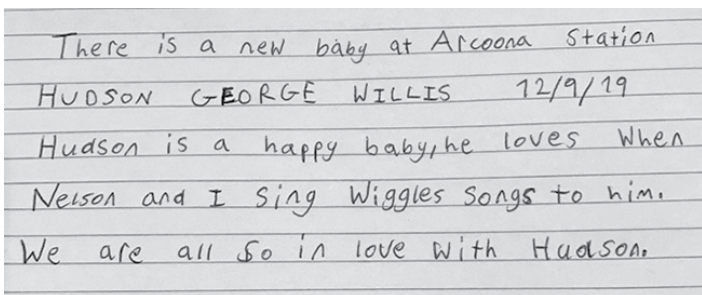 There is a new baby at Arcoona Station
HUDSON GEORGE WILLIS 12/9/19
Hudson is a happy baby, he loves when
Nelson and I sing Wiggles songs to him.
We are all so in love with Hudson.